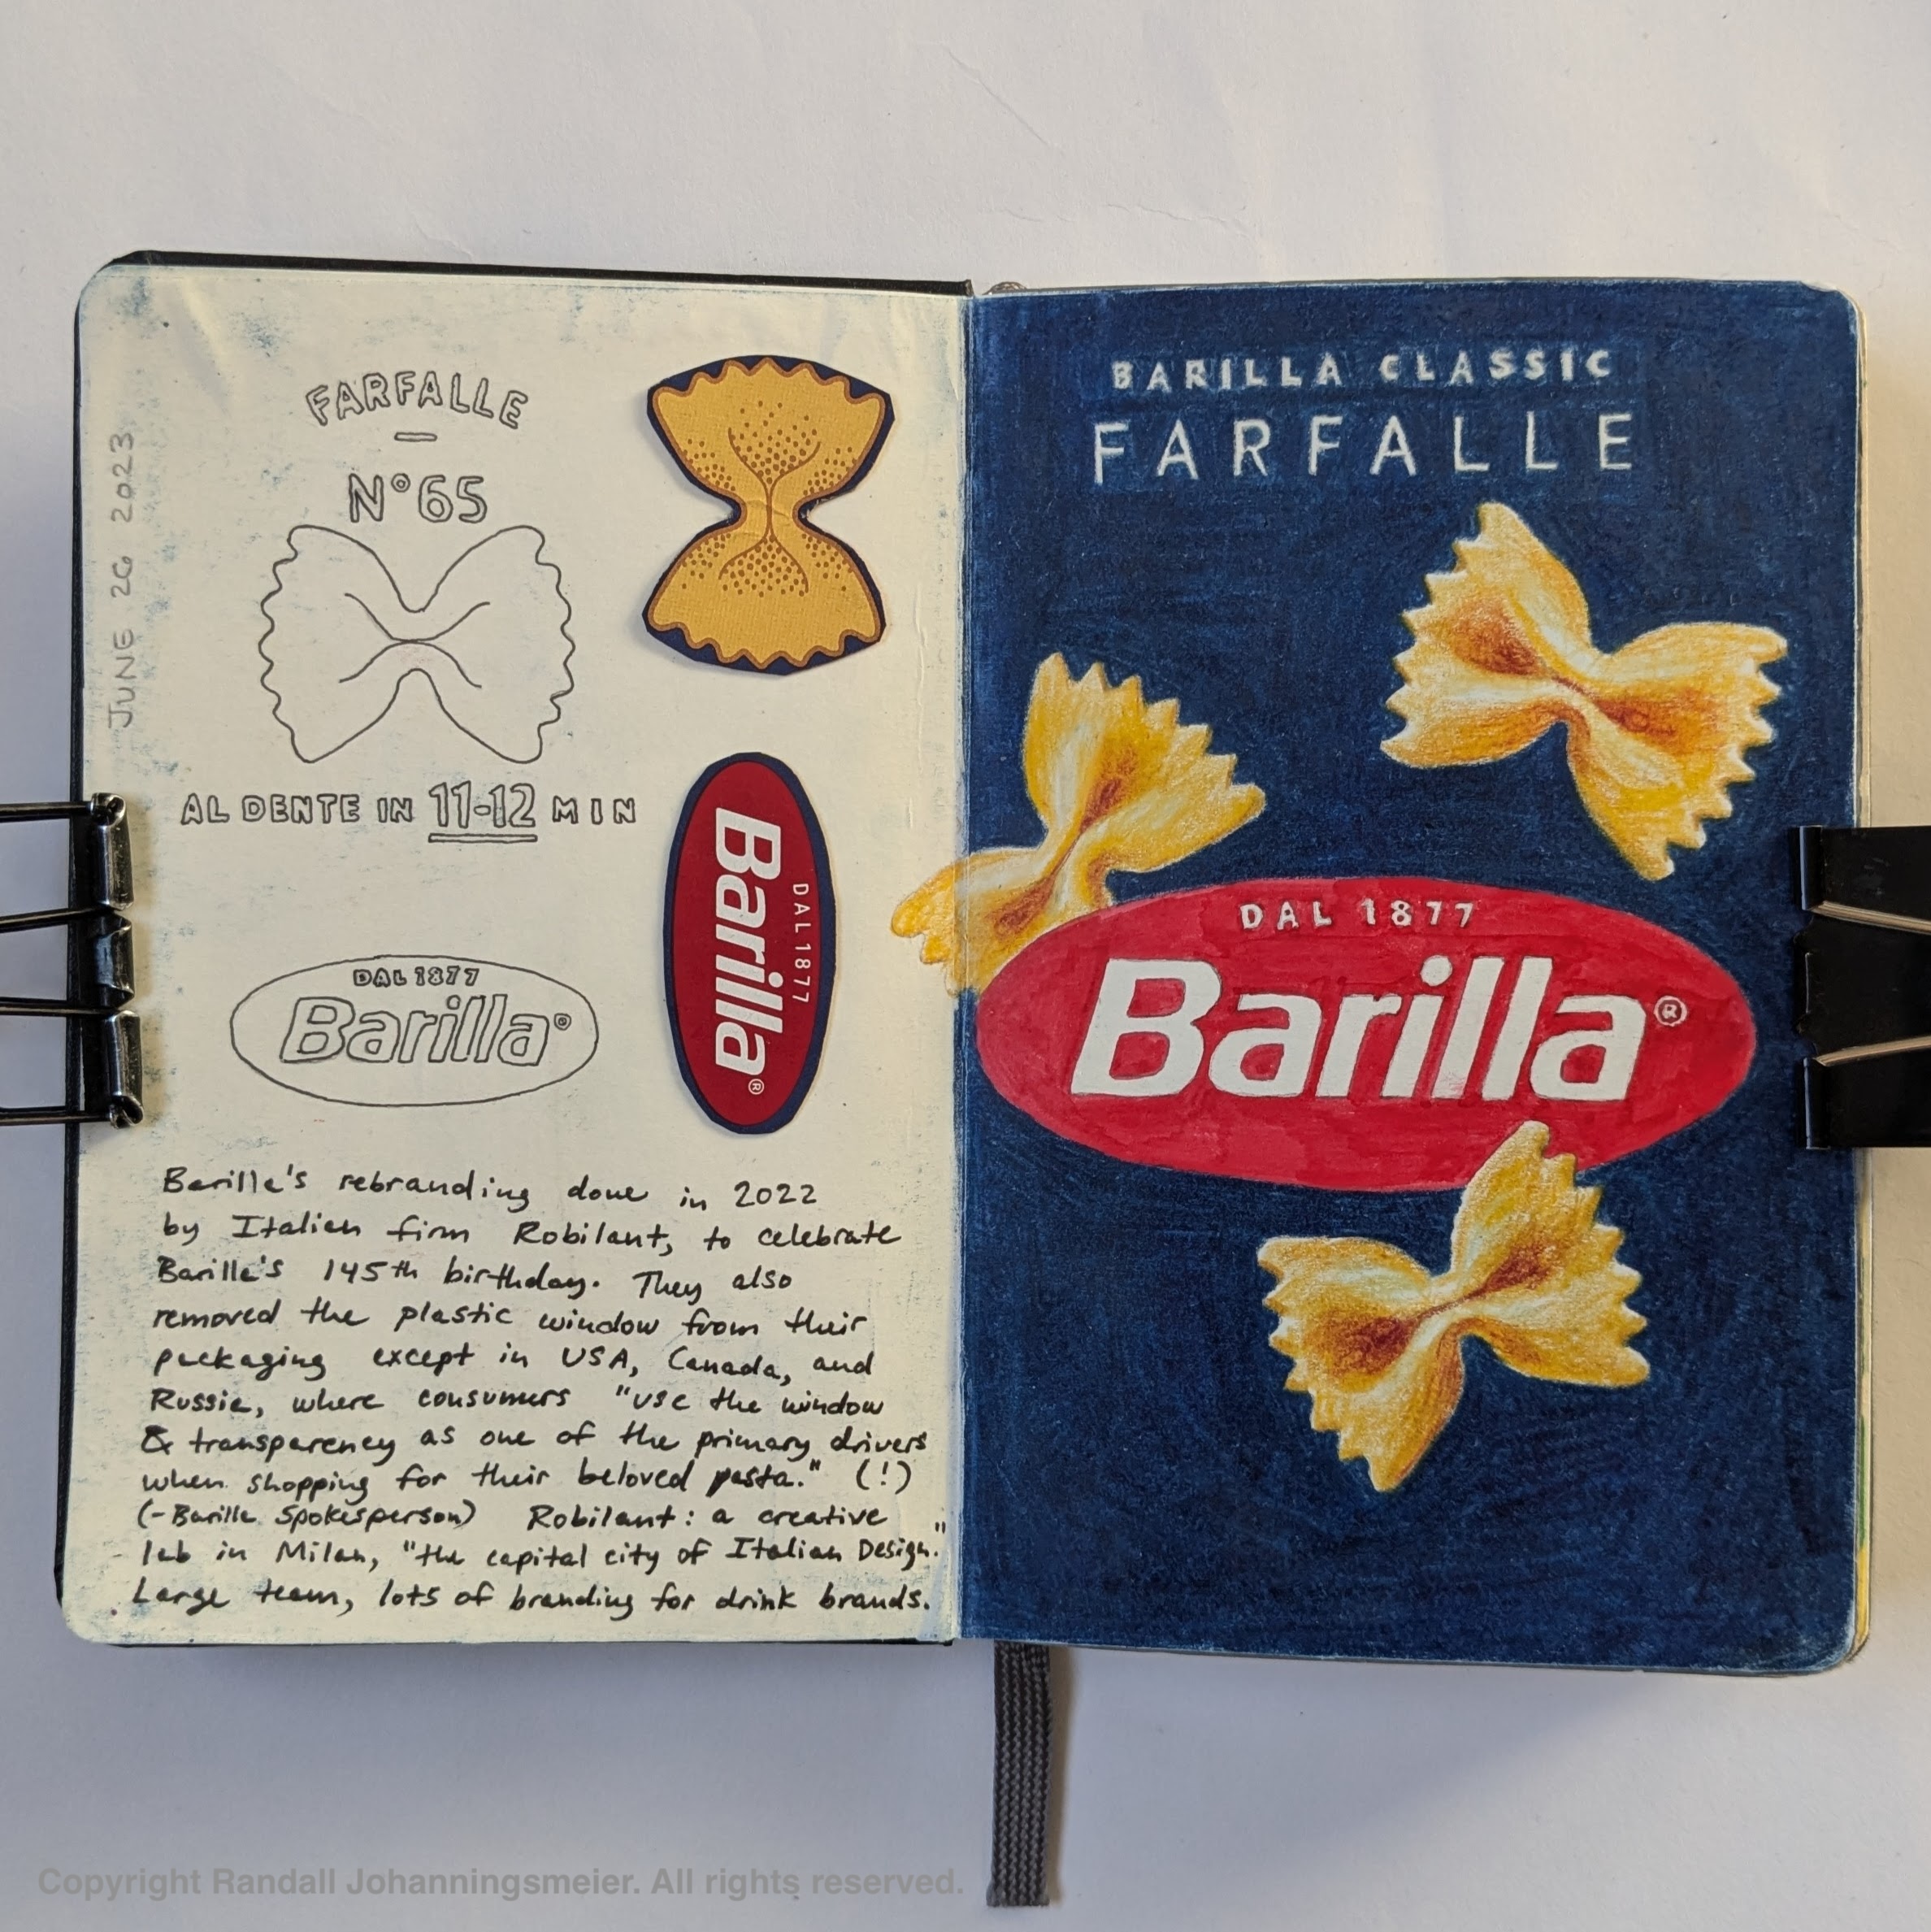 JUNE 26 2023
FARFALLE
N°65
AL DENTE IN 11-12 MIN
DAL 1877
Barilla®
DAL 1877
Barilla®
Barilla's rebranding done in 2022
by Italian firm Robilant, to celebrate
Barilla's 145th birthday. They also
removed the plastic window from their
packaging except in USA, Canada, and
Russia, where consumers "use the window
& transparency as one of the primary drivers
when shopping for their beloved pasta." (!)
(-Barilla Spokesperson) Robilant: a creative
lab in Milan, "the capital city of Italian Design."
Large team, lots of branding for drink brands.
BARILLA CLASSIC
FARFALLE
DAL 1877
Barilla®
Copyright Randall Johanningsmeier. All rights reserved.